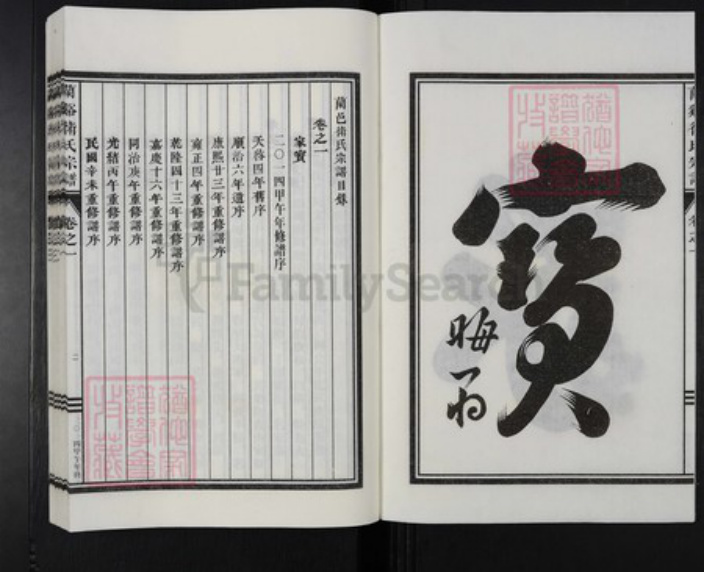 寶
晦翁
蘭邑衛氏宗譜目錄
卷之一
家寶
二〇一四甲午年修譜序
天啓四年舊序
順治六年遺序
康熙廿三年重修譜序
雍正四年重修譜序
乾隆四十三年重修譜序
嘉慶十六年重修譜序
同治庚午重修譜序
光緒丙午重修譜序
民國辛未重修譜序
卷之一
二
FamilySearch